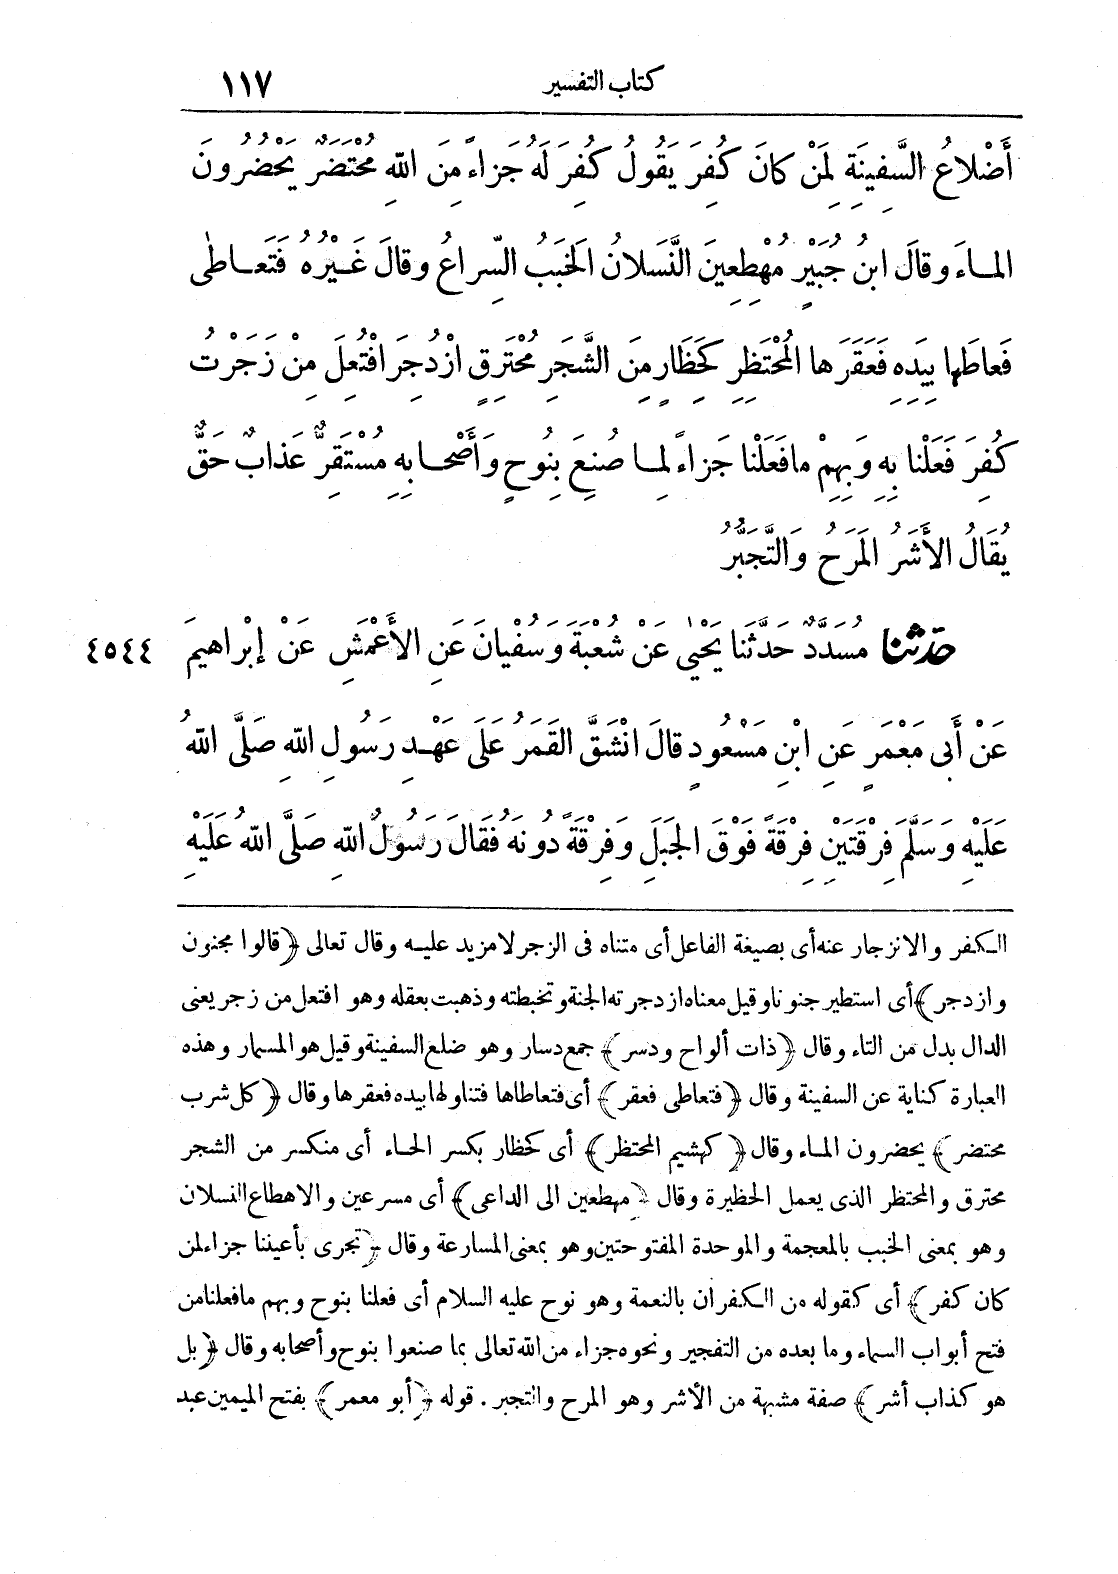 كتاب التفسير ١١٧
أَضْلَاعُ السَّفِينَةِ لِمَنْ كَانَ كُفِرَ يَقُولُ كُفِرَ لَهُ جَزَاءً مِنَ اللهِ مُحْتَضَرٌ يَحْضُرُونَ
المــاءَ وقالَ ابنُ جُبَيْرٍ مُهْطِعِينَ النَّسَلَانُ الْخَبَبُ السِّرَاعُ وقالَ غَيْرُهُ فَتَعَــاطٰى
فَعَاطَهَا بِيَدِهِ فَعَقَرَهَا الْمُحْتَظِرِ كَحِظَارٍ مِنَ الشَّجَرِ مُحْتَرِقٍ ازْدُجِرَ افْتُعِلَ مِنْ زَجَرْتُ
كُفِرَ فَعَلْنَا بِهِ وَبِهِمْ مافَعَلْنَا جَزَاءً لِمــا صُنِعَ بِنُوحٍ وَأَصْحَــابِهِ مُسْتَقِرٌّ عَذَابٌ حَقٌّ
يُقَالُ الأَشَرُ الْمَرَحُ وَالتَّجَبُّرُ
حَدَّثَنَا مُسَدَّدٌ حَدَّثَنَا يَحْيٰى عَنْ شُعْبَةَ وَسُفْيَانَ عَنِ الأَعْمَشِ عَنْ إِبْرَاهِيمَ ٤٥٤٤
عَنْ أَبِى مَعْمَرٍ عَنِ ابْنِ مَسْعُودٍ قالَ انْشَقَّ القَمَرُ عَلَى عَهْــدِ رَسُولِ اللهِ صَلَّى اللهُ
عَلَيْهِ وَسَلَّمَ فِرْقَتَيْنِ فِرْقَةً فَوْقَ الْجَبَلِ وَفِرْقَةً دُونَهُ فَقَالَ رَسُولُ اللهِ صَلَّى اللهُ عَلَيْهِ
الــكفر والانزجار عنه أى بصيغة الفاعل أى متناه فى الزجر لامزيد عليــه وقال تعالى ﴿قالوا مجنون
وازدجر﴾ أى استطير جنونا وقيل معناه ازدجرته الجنة وتخبطته وذهبت بعقله وهو افتعل من زجر يعنى
الدال بدل من التاء وقال ﴿ذات ألواح ودسر﴾ جمع دسار وهو ضلع السفينة وقيل هو المسمار وهذه
العبارة كناية عن السفينة وقال ﴿فتعاطى فعقر﴾ أى فتعاطاها فتناولها بيده فعقرها وقال ﴿كل شرب
محتضر﴾ يحضرون المــاء وقال ﴿كهشيم المحتظر﴾ أى كحظار بكسر الحــاء أى منكسر من الشجر
محترق والمحتظر الذى يعمل الحظيرة وقال ﴿مهطعين الى الداعى﴾ أى مسرعين والاهطاع النسلان
وهو بمعنى الخبب بالمعجمة والموحدة المفتوحتين وهو بمعنى المسارعة وقال ﴿تجرى بأعيننا جزاء لمن
كان كفر﴾ أى كقوله من الــكفران بالنعمة وهو نوح عليه السلام أى فعلنا بنوح وبهم مافعلنا من
فتح أبواب السماء وما بعده من التفجير ونحوه جزاء من الله تعالى بما صنعوا بنوح وأصحابه وقال ﴿بل
هو كذاب أشر﴾ صفة مشبهة من الأشر وهو المرح والتجبر . قوله ﴿أبو معمر﴾ بفتح الميمين عبد